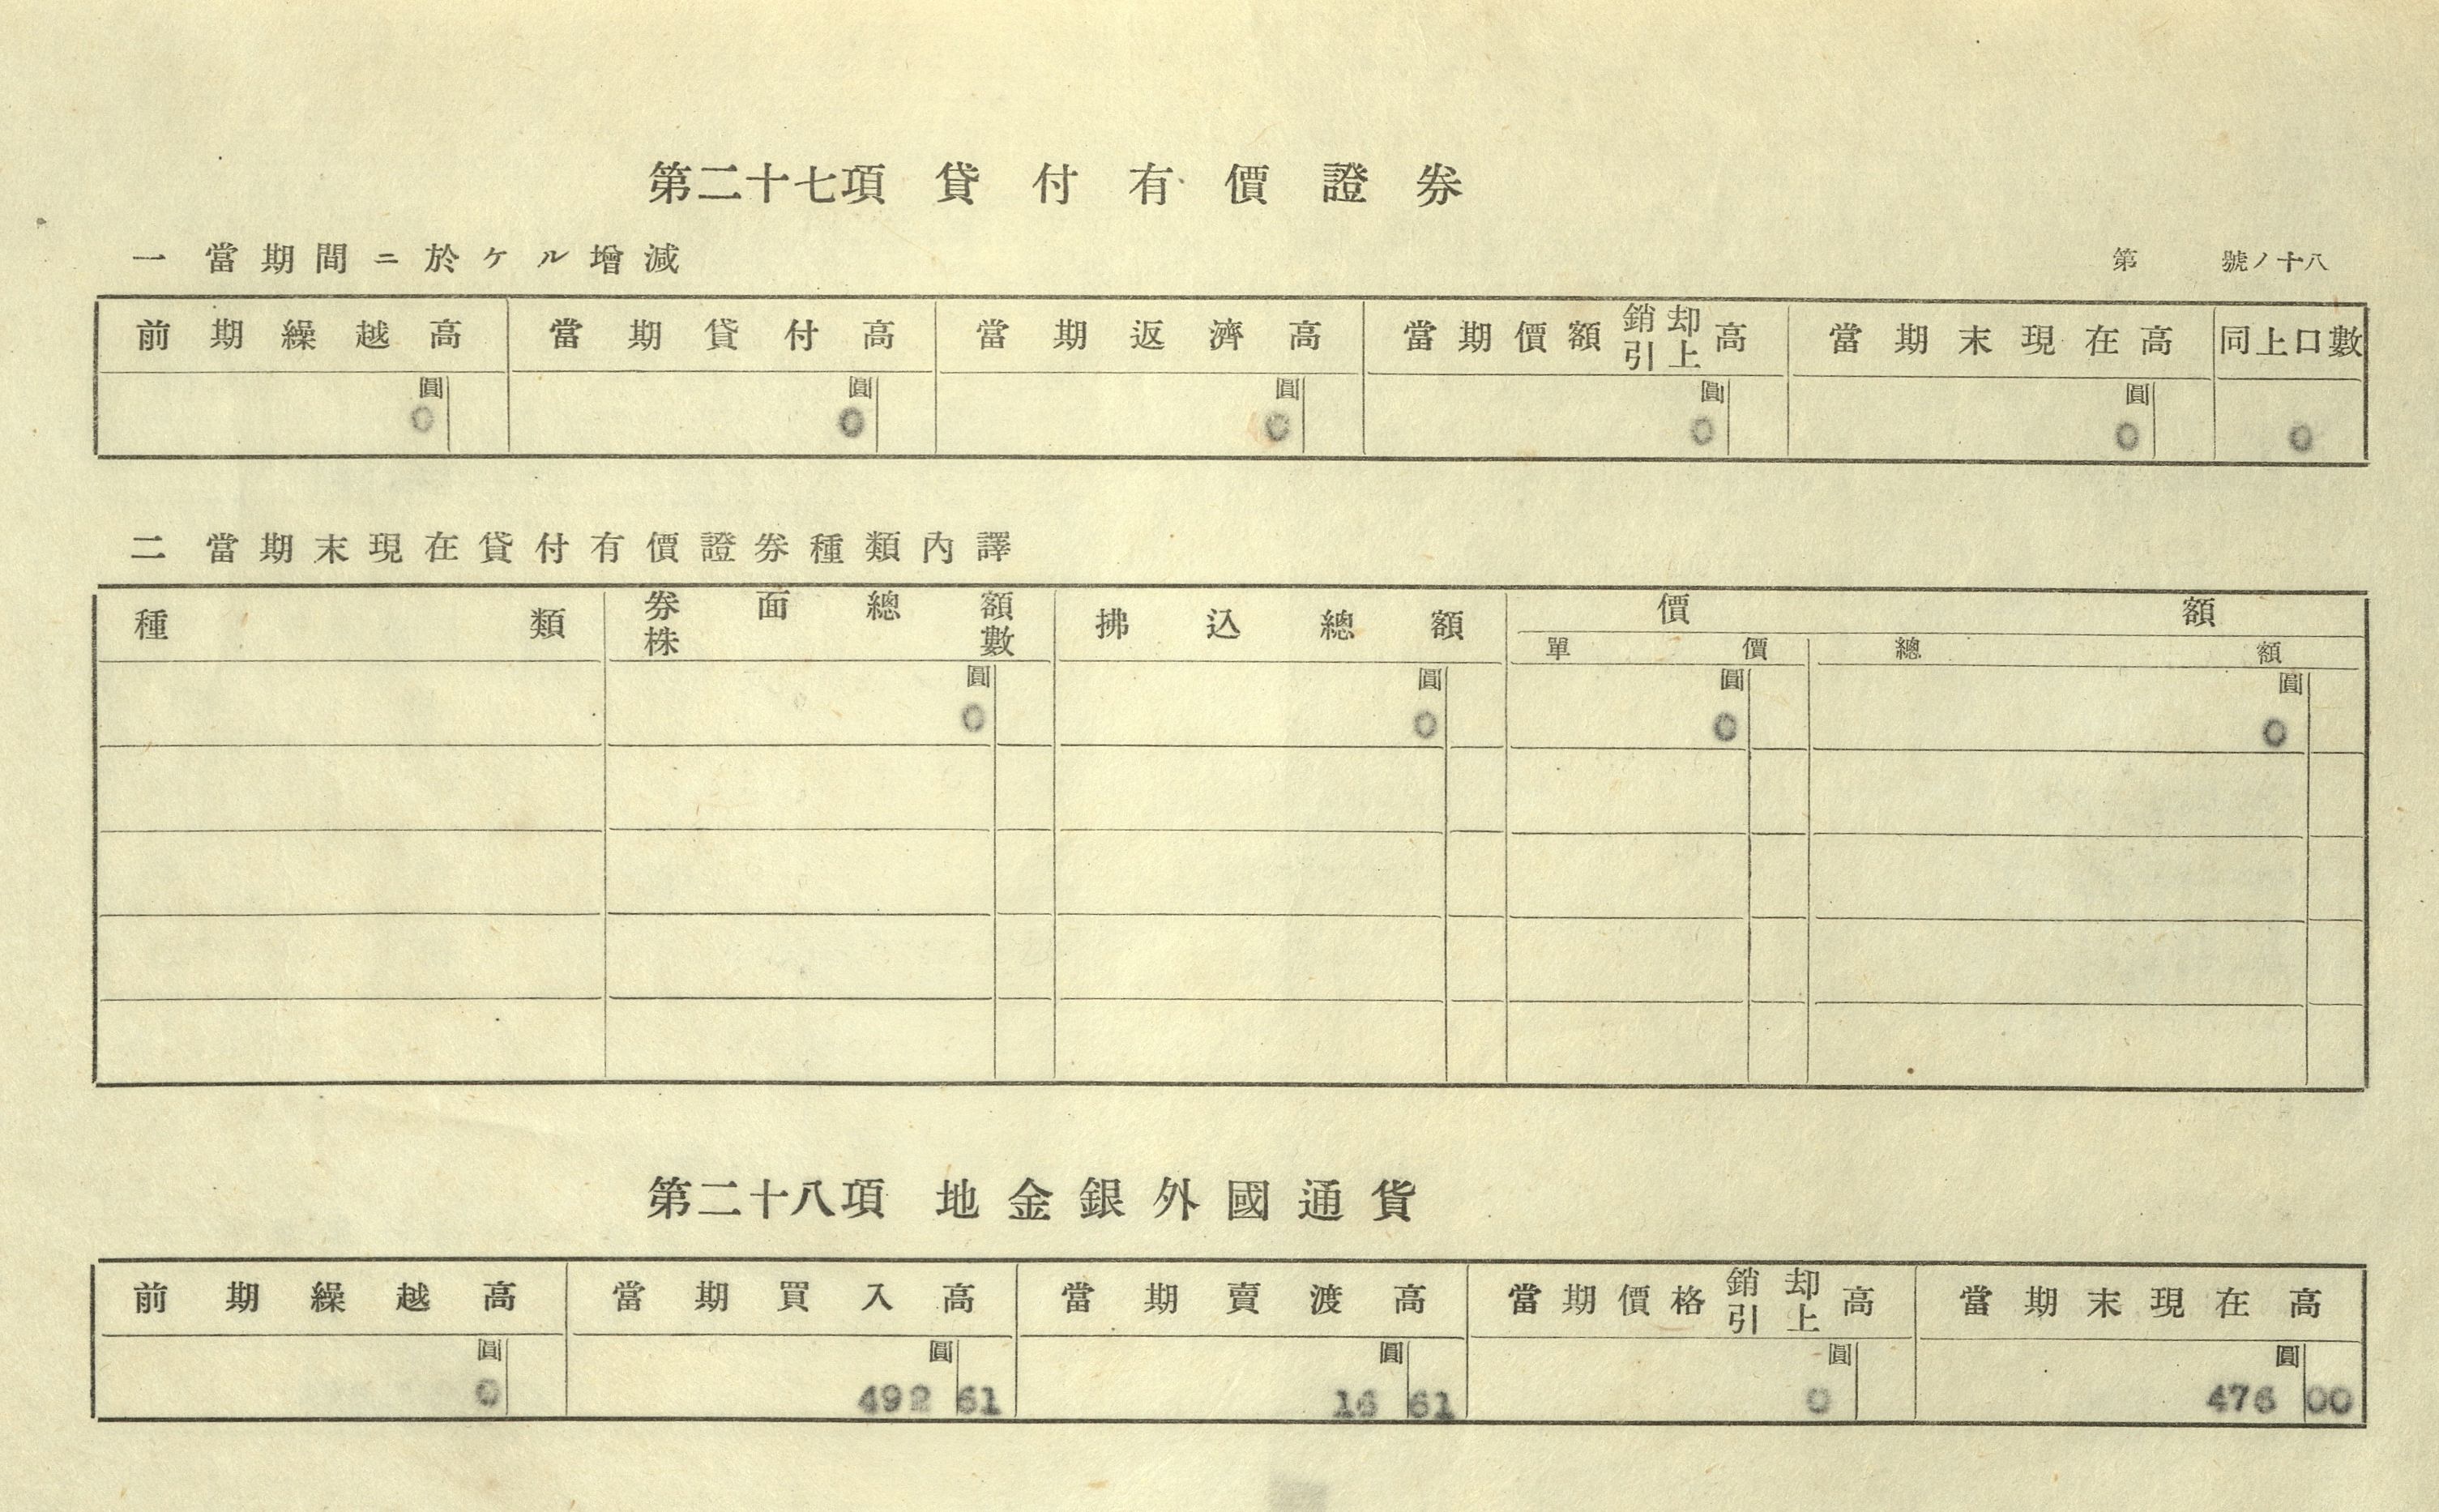 第二十七項 貸付有價證券
一 當期間ニ於ケル增減 第 號ノ十八
前期繰越高 當期貸付高 當期返濟高 當期價額銷却引上高 當期末現在高 同上口數
圓 圓 圓 圓 圓
0 0 0 0 0 0
二 當期末現在貸付有價證券種類內譯
種類 券面總額 株數 拂込總額 價額
單價 總額
圓 圓 圓 圓
0 0 0 0
第二十八項 地金銀外國通貨
前期繰越高 當期買入高 當期賣渡高 當期價格銷却引上高 當期末現在高
圓 圓 圓 圓 圓
0 492 61 16 61 0 476 00